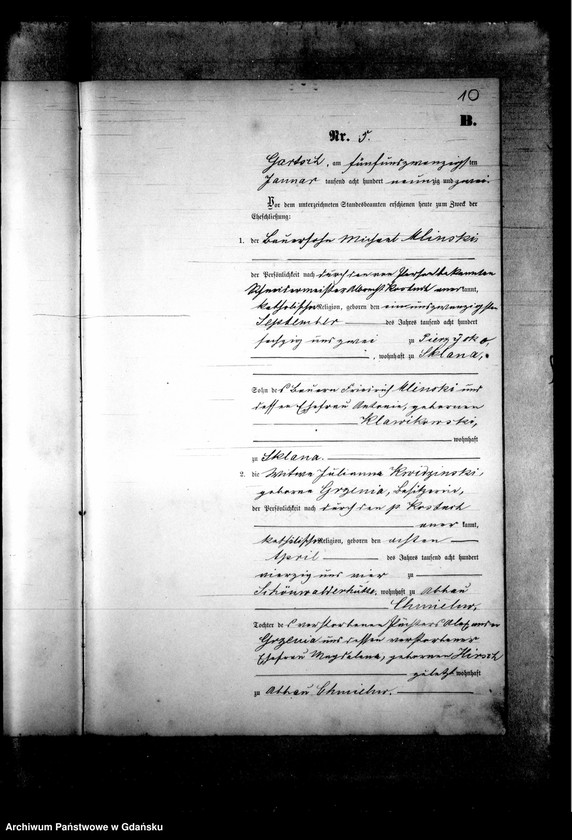 10
B.
Nr. 5.
Gartsch, am fünfundzwanzigsten
Januar tausend acht hundert neunzig und zwei.
Vor dem unterzeichneten Standesbeamten erschienen heute zum Zweck der
Eheschließung:
1. der Bauersohn Michael Mlinski
der Persönlichkeit nach durch den von Person bekannten
Schneidermeister Kostuch anerkannt,
katholischer Religion, geboren den einundzwanzigsten
September des Jahres tausend acht hundert
sechzig und zwei zu
, wohnhaft zu Sklana,
Sohn des Bauern Friedrich Mlinski und
dessen Ehefrau Antonie, geborenen
Klawikowski,
wohnhaft
zu Sklana.
2. die Witwe Julianna Kwidzinski,
geborene Grzenia, Besitzerin,
der Persönlichkeit nach durch den p Kostuch
anerkannt,
katholischer Religion, geboren den achten
April des Jahres tausend acht hundert
vierzig und vier zu
Schönwalderhütte, wohnhaft zu Abbau
Chmielno,
Tochter des verstorbenen Pächters Alexander
Grzenia und dessen verstorbener
Ehefrau Magdalena, geborenen Hirsch
zuletzt wohnhaft
zu Abbau Chmielno.
Archiwum Państwowe w Gdańsku